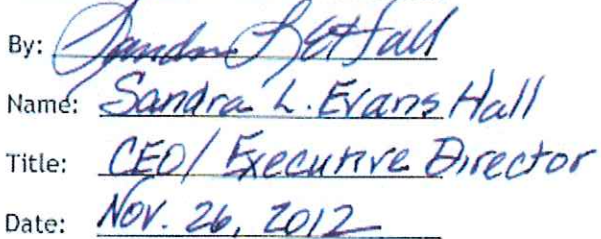 By: Sandra L E Hall
Name: Sandra L. Evans Hall
Title: CEO/ Executive Director
Date: Nov. 26, 2012